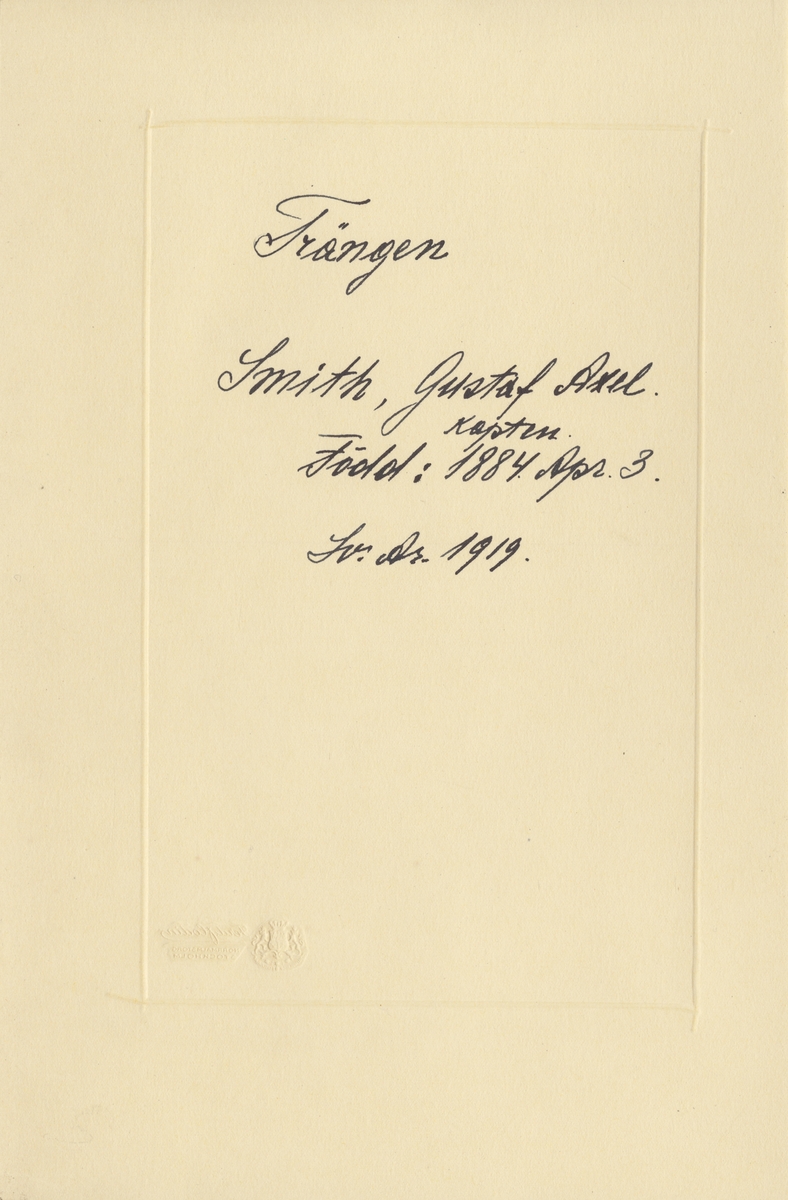 Trängen
Smith, Gustaf Axel.
Kapten.
Född: 1884. Apr. 3.
Sv. Ar. 1919.